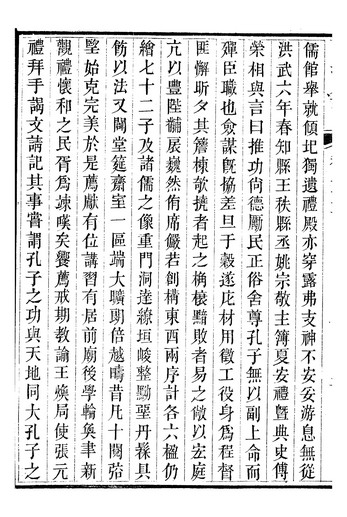 儒館舉就傾圮獨遺禮殿亦穿露弗支神不安妥游息無從
洪武六年春知縣王秩縣丞姚宗敬主簿夏安禮曁典史傅
榮相與言曰推功尚德勵民正俗舍尊孔子無以副上命而
殫臣職也僉謀旣協差旦于穀遂庀材用徵工役身爲程督
匪懈昕夕其簷棟欹撓者起之桷榱黯敗者易之儆以玄庭
亢以豐陛黼扆巍然侑席儼若創構東西兩序計各六楹仍
繪七十二子及諸儒之像重門洞達繚垣峻整黝堊丹𩋾具
飭以法又闢堂筵齋室一區端大曠朗倍越疇昔凡十閱
堅始克完美於是薦獻有位講習有居前廟後學輪奐聿新
觀禮懷和之民胥爲竦嘆矣饗薦戒期敎諭王煥局使張元
禮拜手謁文請記其事嘗謂孔子之功與天地同大孔子之